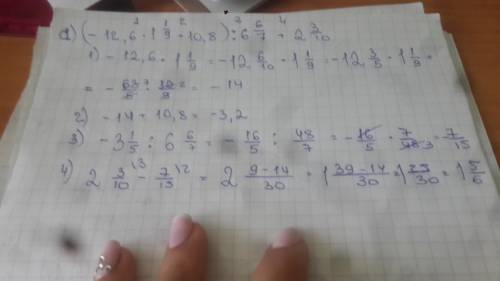 а) (- 12,6 · 1 1/9 + 10,8) : 6 6/7 + 2 3/10
1) - 12,6 · 1 1/9 = -12 6/10 · 1 1/9 = -12 3/5 · 1 1/9 =
= - 63/5 · 10/9 = - 14
2) - 14 + 10,8 = -3,2
3) - 3 1/5 : 6 6/7 = - 16/5 : 48/7 = - 16/5 · 7/48 = 7/15
4) 2 3/10 - 7/15 = 2 9-14/30 = 1 39-14/30 = 1 25/30 = 1 5/6